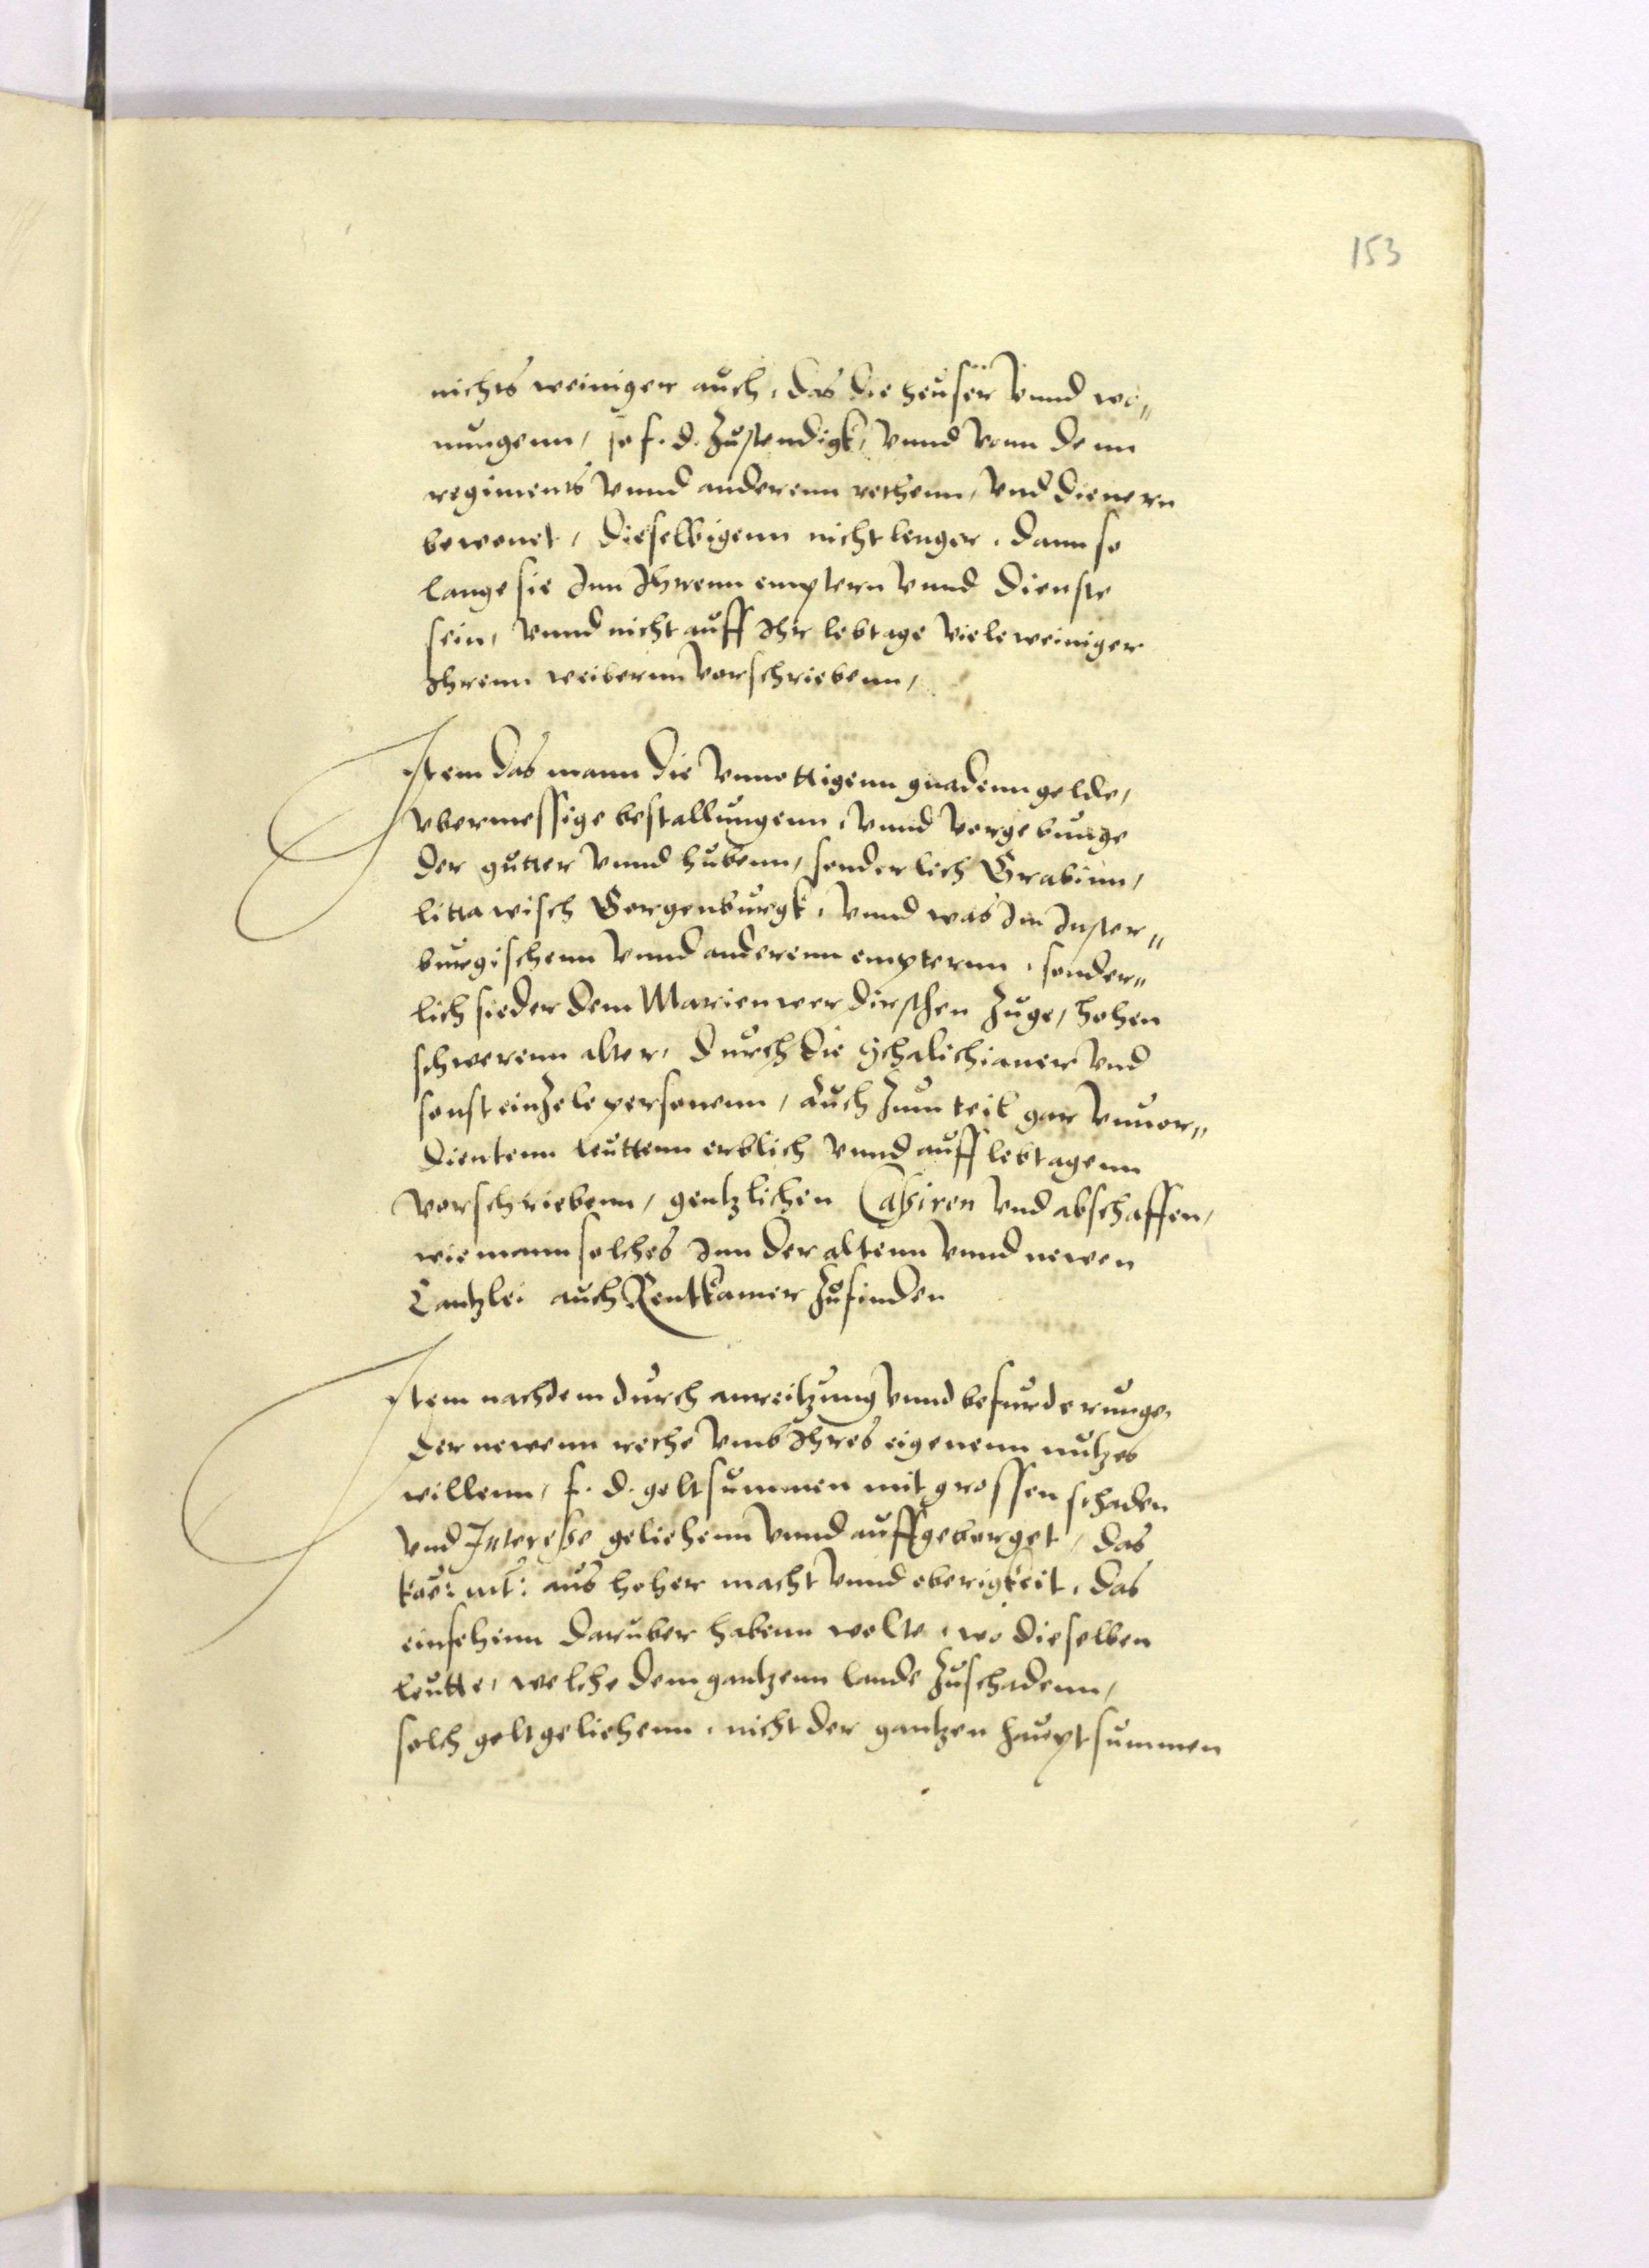 153
nichts weiniger auch, das die heuser vnnd wo„
nungenn, so f. d. zustendigk, vnnd vonn denn
regiments vnnd anderenn rethenn, vnd dienern
bewonet, dieselbigenn nicht lenger, dann so
lange sie Inn Ihrenn emptern vnnd dienste
sein, vnnd nicht auff Ihr lebtage viele weiniger
Ihrenn weibernn vorschriebenn,
Item das mann die vnnottigenn gnadenngelde,
vbermessige bestallungenn, vnnd vorgebunge
der gutter vnnd hubenn, sonderlich Grabinn,
littawisch Gorgenburgk, vnnd was Im Inster„
burgischenn vnnd anderenn empternn, sonder„
lich sieder dem Marienwerdirschen zuge, hohen
schwerenn alter, durch die Schalichianer vnd
sonst einzele personenn, auch zum teil gar vnuor„
dientenn leuttenn erblich vnnd auff lebtagenn
vorschriebenn, gentzlichen Casiren vnd abschaffen,
wie mann solches Inn der altenn vnnd newen
Cantzlei auch Rentkamer zufinden
Item nachdem durch anreitzung vnnd befurderunge,
der newenn rethe vmb Ihres eigenenn nutzes
willenn, f. d. geltsummen mit grossen schaden
vnd Interesse geliehenn vnnd auffgeborget, das
koe: mt: aus hoher macht vnnd oberigkeit, das
einsehinn daruber habenn wolte, wo dieselben
leutte, welche dem gantzenn lande zuschadenn,
solch gelt geliehenn, nicht der gantzen hauptsummen